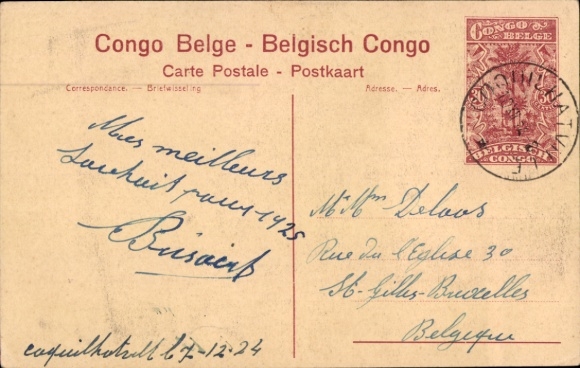 Congo Belge - Belgisch Congo
Carte Postale - Postkaart
Correspondance. — Briefwisseling
Adresse. — Adres.
CONGO BELGE
BELGISCH CONGO
Mes meilleurs
Souhait pour 1925
Mr Mme Deloos
Rue du l'Eglise 30
St-Gilles-Bruxelles
Belgique
17-12-24